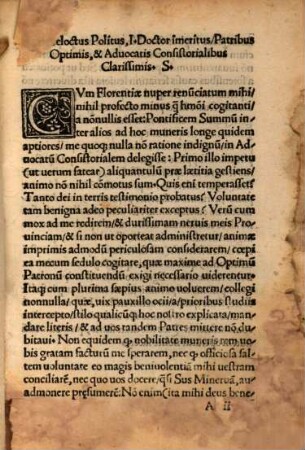 eloctus Politus, I⸗ Doctor ĩmeritus/Patribus
Optimis, & Aduocatis Consistorialibus
Clarissimis⸗ S⸗
CVm Florentiæ nuper renũciatum mihi/
nihil profecto minus q̃ hmõi cogitanti/
a nõnullis esset: Pontificem Summũ in
ter alios ad hoc muneris longe quidem
aptiores/me quoq; nulla nõ ratione indignũ/in Ad
uocatũ Consistorialem delegisse: Primo illo impetu
(ut uerum fatear) aliquantulũ præ lætitia gestiens/
animo nõ nihil cõmotus sum⸗Quis eni temperasset?
Tanto dei in terris testimonio probatus? Voluntate
tam benigna adeo peculiariter exceptus? Verũ cum
mox ad me redirem/& durissimam neruis meis Pro
uinciam/& si non ut oporteat administretur/animæ
imprimis admodũ periculosam considerarem/cœpi
ea mecum sedulo cogitare, quæ maxime ad Optimũ
Patronũ constituendũ exigi necessario uiderentur⸗
Itaq; cum plurima sæpius animo uoluerem/collegi
nonnulla/quæ, uix pauxillo ocii/a/prioribus studiis
intercepto/stilo qualicũq; hoc nostro explicata/man
dare literis/& ad uos tandem Patres mittere nõ du
bitaui⸗ Non equidem q; nobilitate muneris rem uo
bis gratam facturũ me sperarem, nec q; officiosa sal
tem uoluntate eo magis beniuolentiã mihi uestram
conciliarẽ, nec quo uos docere/q̃si Sus Mineruã, au
admonere præsumerẽ: Nõ enim(ita mihi deus bene
A II